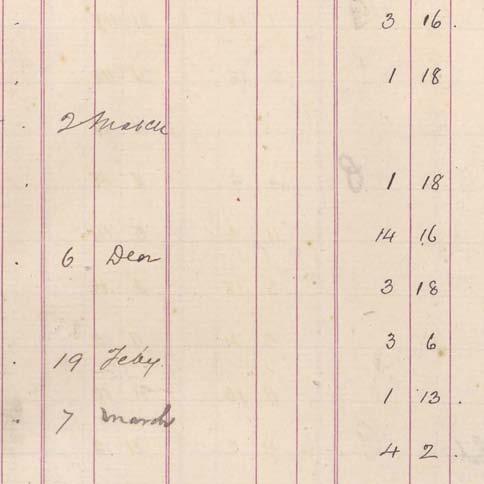 3 16.
1 18
2 March
1 18
14 16
6 Decr
3 18
3 6
19 Feby
1 13.
7 March
4 2.